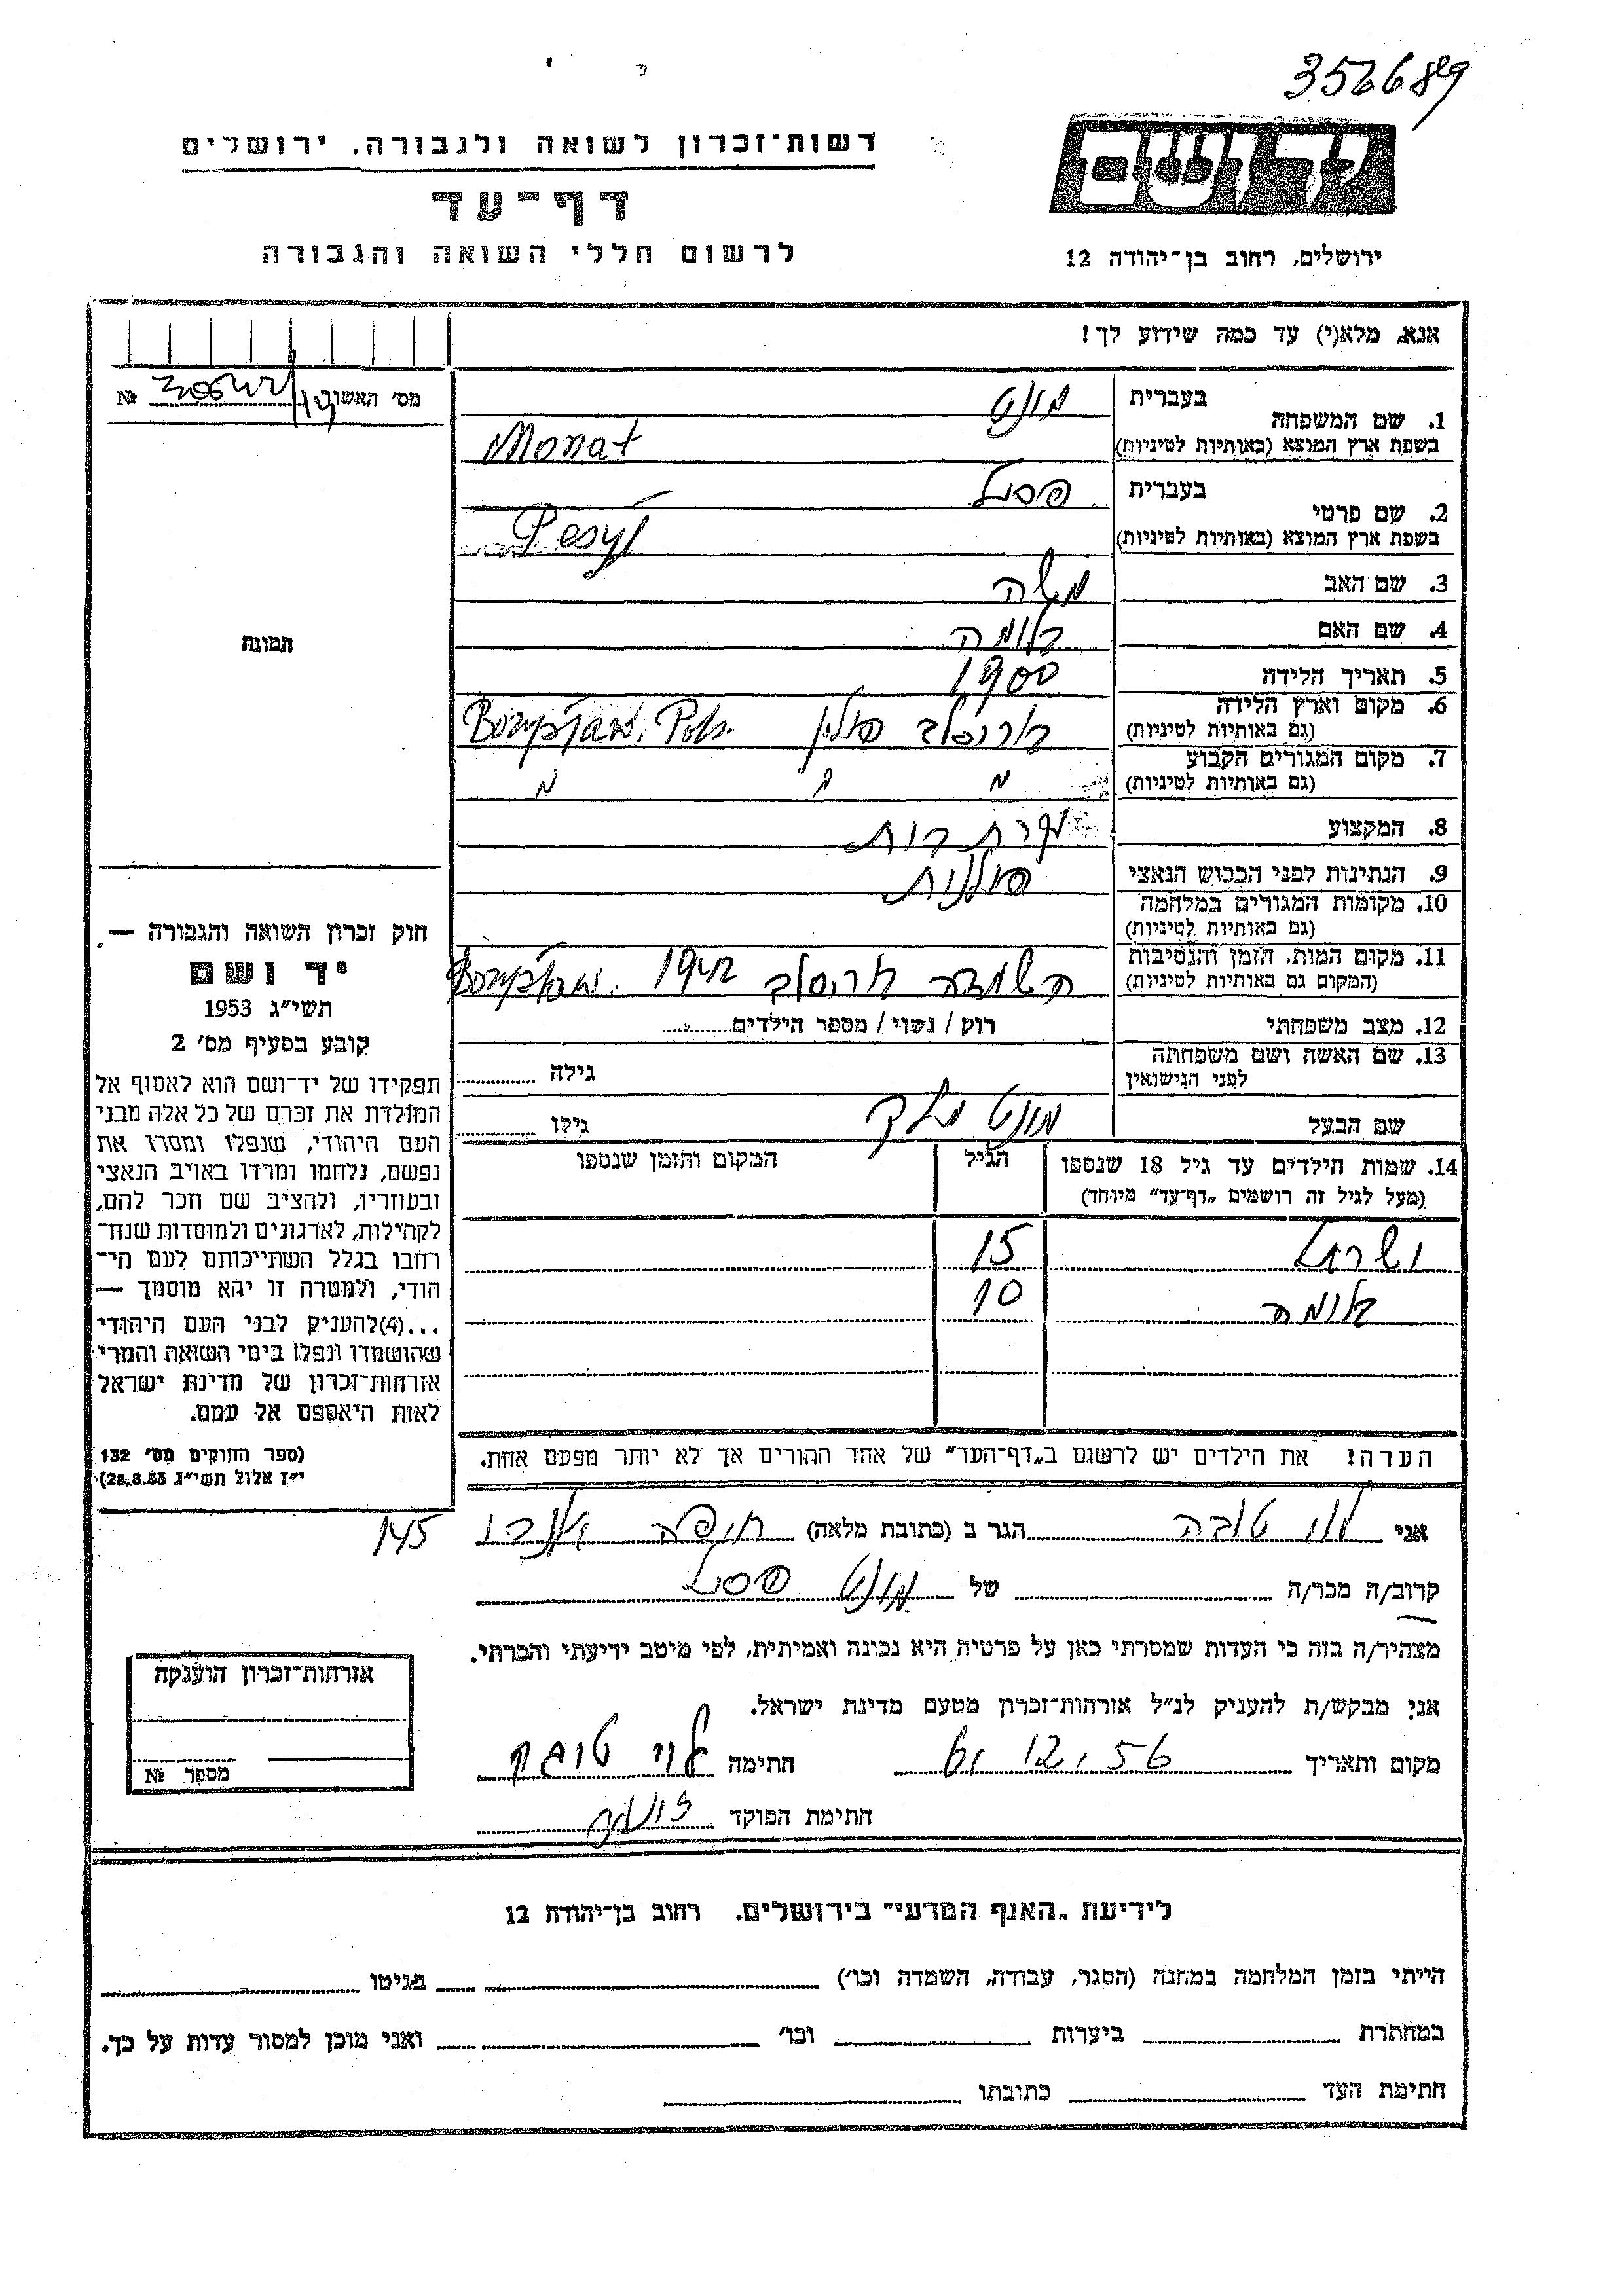 356689
רשות־זכרון לשואה ולגבורה, ירושלים
דף־עד
לרשום חללי השואה והגבורה
ירושלים, רחוב בן־יהודה 12
אנא, מלא(י) עד כמה שידוע לך!
מס' האשור №
1. שם המשפחה בעברית מונט
בשפת ארץ המוצא (באותיות לטיניות) Monat
2. שם פרטי בעברית פסיל
בשפת ארץ המוצא (באותיות לטיניות) Pesyl
3. שם האב משה
4. שם האם בלומה
5. תאריך הלידה 1900
6. מקום וארץ הלידה
(גם באותיות לטיניות) פולין
7. מקום המגורים הקבוע
(גם באותיות לטיניות)
8. המקצוע עקרת בית
9. הנתינות לפני הכבוש הנאצי פולנית
10. מקומות המגורים במלחמה
(גם באותיות לטיניות)
11. מקום המות, הזמן והנסיבות
(המקום גם באותיות לטיניות) השמדה 1942
12. מצב משפחתי רוק / נשוי / מספר הילדים
13. שם האשה ושם משפחתה
לפני הנישואין גילה
שם הבעל מונט גילו
14. שמות הילדים עד גיל 18 שנספו הגיל המקום והזמן שנספו
(מעל לגיל זה רושמים „דף־עד” מיוחד)
ישראל 15
בלומה 10
הערה! את הילדים יש לרשום ב„דף־העד” של אחד ההורים אך לא יותר מפעם אחת.
תמונה
חוק זכרון השואה והגבורה —
יד ושם
תשי״ג 1953
קובע בסעיף מס' 2
תפקידו של יד־ושם הוא לאסוף אל
המולדת את זכרם של כל אלה מבני
העם היהודי, שנפלו ומסרו את
נפשם, נלחמו ומרדו באויב הנאצי
ובעוזריו, ולהציב שם וזכר להם,
לקהילות, לארגונים ולמוסדות שנח־
רבו בגלל השתייכותם לעם הי־
הודי, ולמטרה זו יהא מוסמך —
...(4) להעניק לבני העם היהודי
שהושמדו ונפלו בימי השואה והמרי
אזרחות־זכרון של מדינת ישראל
לאות היאספם אל עמם.
(ספר החוקים מס' 132
י״ז אלול תשי״ג 28.8.53)
אני לוי טובה הגר ב (כתובת מלאה) חיפה 145
קרוב/ה מכר/ה של מונט פסיל
מצהיר/ה בזה כי העדות שמסרתי כאן על פרטיה היא נכונה ואמיתית, לפי מיטב ידיעתי והכרתי.
אני מבקש/ת להעניק לנ״ל אזרחות־זכרון מטעם מדינת ישראל.
מקום ותאריך 12.56 חתימה לוי טובה
חתימת הפוקד
אזרחות־זכרון הוענקה
מספר №
לידיעת „האגף המדעי” בירושלים, רחוב בן־יהודה 12
הייתי בזמן המלחמה במחנה (הסגר, עבודה, השמדה וכו') בגיטו
במחתרת ביערות וכו' ואני מוכן למסור עדות על כך.
חתימת העד כתובתו